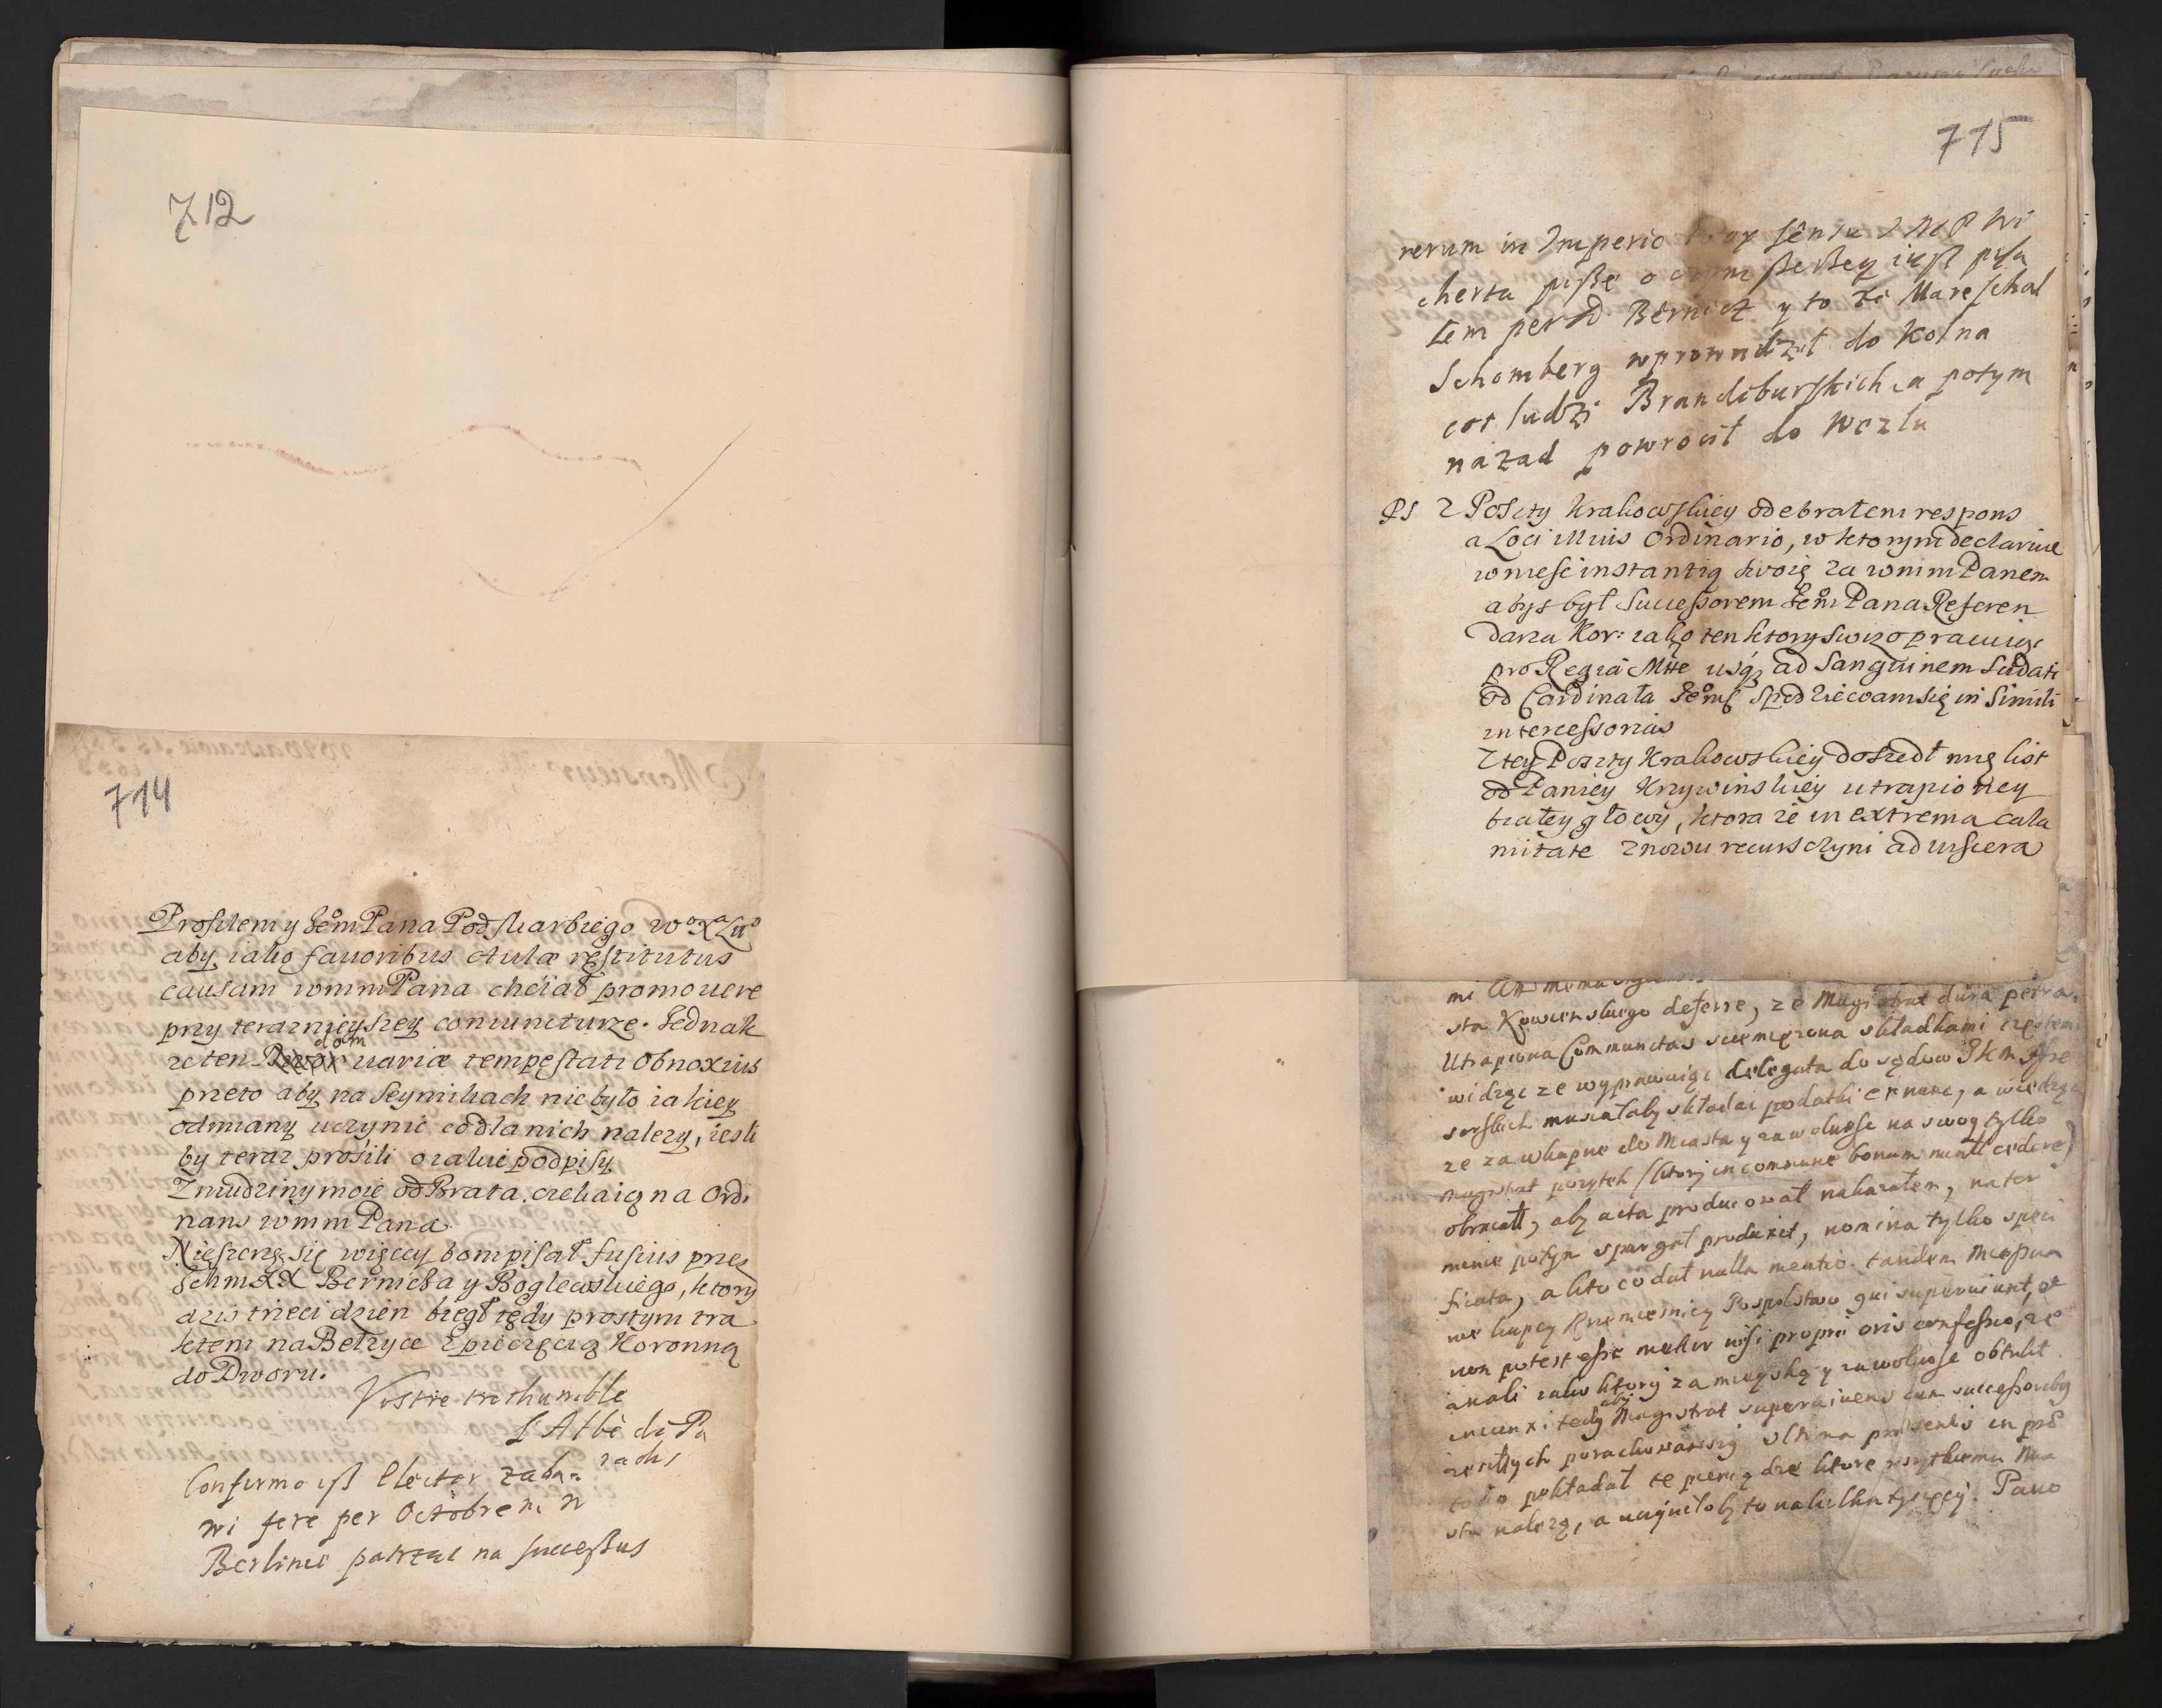 712
714
Prosilem y Jem Pana Podskarbiego
aby iako fauoribus Aulæ restitutus
causam wmm Pana chciał promouere
przy teraznieyszey coniuncturze. Jednak
ze ten dom uariæ tempestati obnoxius
przeto aby na Seymikach nie było iakiey
odmiany uczynic co dla nich nalezy, iesli
by teraz prosili o iakie podpisy
Zmudziny moie od Brata czekaią na Ordi
nans wmm Pana
Nieszerzę się więcey bom pisał fusius przez
Ichm XX Bernicza y Boglewskiego, ktory
dzis trzeci dzien biegł tędy prostym tra
ktem na Bełzyce z pieczęcią Koronną
do Dworu.
Vostre treshumble
L'Abbè di Pa
radis
Confirmo isz Elector zaba-
wi fere per Octobrem w
Berlinie patrząc na successus
715
rerum in Imperio
cherta pisze o czym szerzey iest pisa
łem per D. Bernicz y to ze Mareschal
Schomberg wprowadził do Kolna
cos ludzi Brandeburskich a potym
nazad powrocił do Wezlu
PS Z Poczty Krakowskiey odebrałem respons
a Loci Illmis Ordinario, w ktorym declaruie
wniesc instantią swoię za wmm Panem
abys był Successorem Jem Pana Referen
darza Kor: iako ten ktory swizo pracuiąc
pro Regia Mtte usq; ad Sanguinem sudati
od Cardinała Jemsc spodziewam się in simili
intercessorias
Z tey Poczty Krakowskiey doszedł mię list
od Paniey Krzywinskiey utrapioney
białey głowy, ktora ze in extrema cala
mitate znowu recurs czyni ad uiscera
sta Kowienskiego deferre, ze Magistrat dura petra,
Utrapiona Communitas sciemięzona składkami częstemi
widząc ze wyprawuiąc delegata do sądow JKM
sorskich musiałaby składac podatki er nunc, a wiedząc
ze za wkupne do Miasta y za wolnosc na swoy tylko
Magistrat pozytek /ktory in commune bonum cedere/
obracał, aby acta producował nakazałem, na ter
minie potym spargał produxit, nomina tylko speci
ficata, a kto co dał nulla mentio. tandem
we kupcy Rzemiesnicy Pospolstwo qui superuiuunt,
non potest esse melior nisi proprii oris confessio, ze
znali iako ktory za mieyską y za wolnosc obtulit
iniunxi tedy aby Magistrat superuiuens cum successoribus
zeszłych porachowawszy ultima praesentis in pro
pokładał te pieniądze ktore wszytkiemu Mia
stu nalezą, a uczyniłoby to na kilka tysięcy. Pano